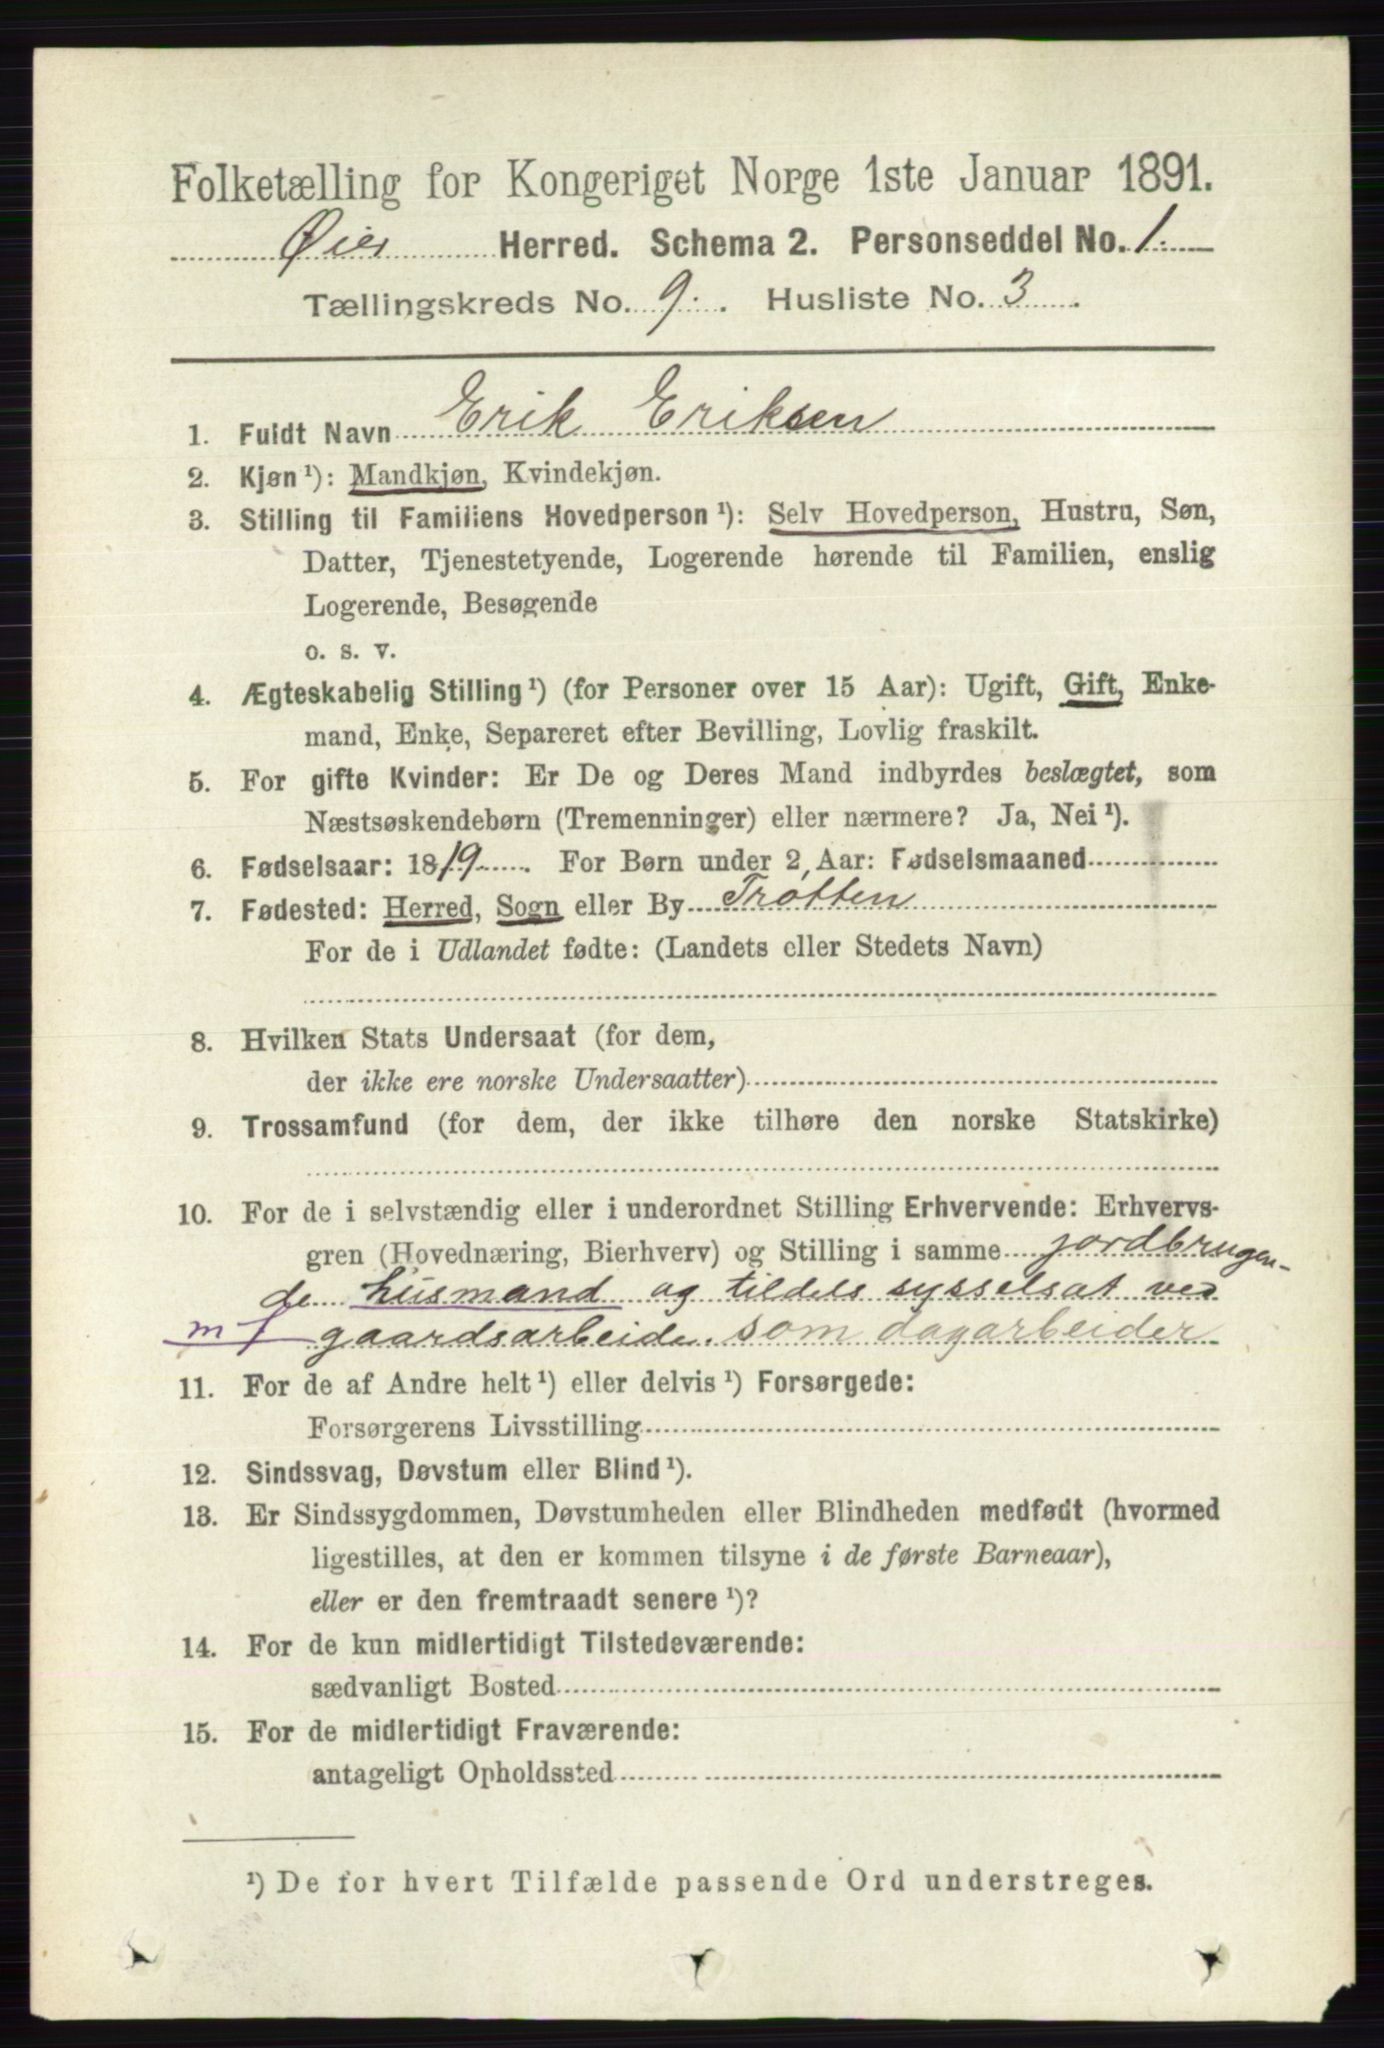 Folketælling for Kongeriget Norge 1ste Januar 1891.
Øier Herred. Schema 2. Personseddel No. 1.
Tællingskreds No. 9. Husliste No. 3.
1. Fuldt Navn Erik Eriksen
2. Kjøn¹): Mandkjøn, Kvindekjøn.
3. Stilling til Familiens Hovedperson¹): Selv Hovedperson, Hustru, Søn,
Datter, Tjenestetyende, Logerende hørende til Familien, enslig
Logerende, Besøgende
o. s. v.
4. Ægteskabelig Stilling¹) (for Personer over 15 Aar): Ugift, Gift, Enke-
mand, Enke, Separeret efter Bevilling, Lovlig fraskilt.
5. For gifte Kvinder: Er De og Deres Mand indbyrdes beslægtet, som
Næstsøskendebørn (Tremenninger) eller nærmere? Ja, Nei¹).
6. Fødselsaar: 1819. For Børn under 2 Aar: Fødselsmaaned
7. Fødested: Herred, Sogn eller By Trotten
For de i Udlandet fødte: (Landets eller Stedets Navn)
8. Hvilken Stats Undersaat (for dem,
der ikke ere norske Undersaatter)
9. Trossamfund (for dem, der ikke tilhøre den norske Statskirke)
10. For de i selvstændig eller i underordnet Stilling Erhvervende: Erhvervs-
gren (Hovednæring, Bierhverv) og Stilling i samme jordbrugen-
de husmand og tildels sysselsat ved
m f gaardsarbeide. som dagarbeider
11. For de af Andre helt¹) eller delvis¹) Forsørgede:
Forsørgerens Livsstilling
12. Sindssvag, Døvstum eller Blind¹).
13. Er Sindssygdommen, Døvstumheden eller Blindheden medfødt (hvormed
ligestilles, at den er kommen tilsyne i de første Barneaar),
eller er den fremtraadt senere¹)?
14. For de kun midlertidigt Tilstedeværende:
sædvanligt Bosted
15. For de midlertidigt Fraværende:
antageligt Opholdssted
¹) De for hvert Tilfælde passende Ord understreges.